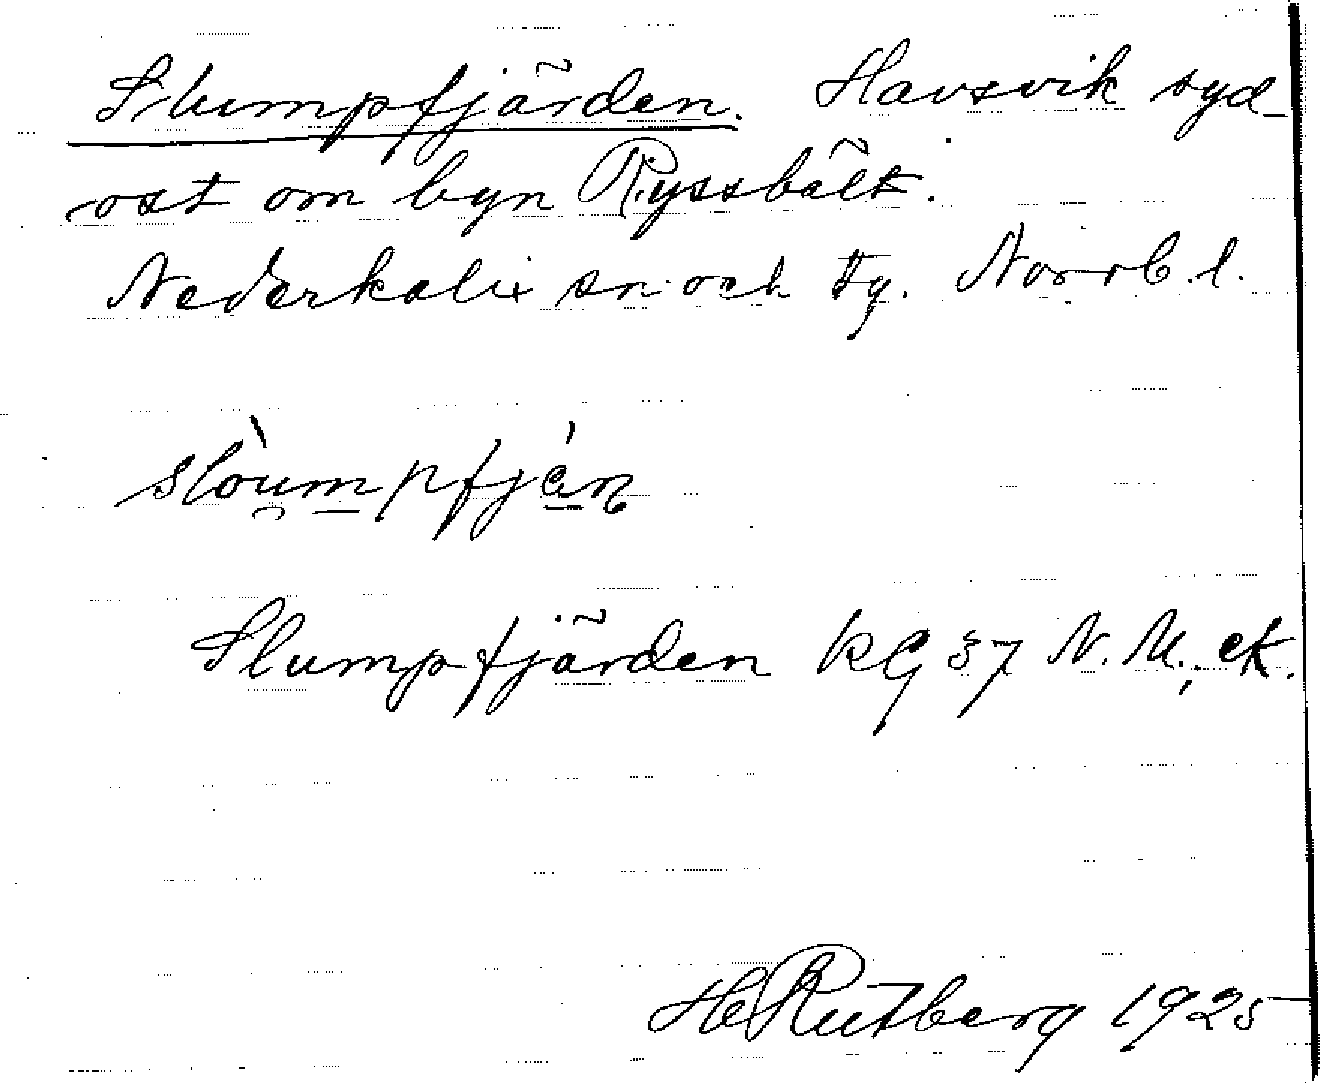 Slumpfjärden. Havsvik syd-
ost om byn Ryssbält.
Nederkalix sn och tg. Norrb. l.
Slumpfjärden kG 37 N. M., ek.
H Rutberg 1925